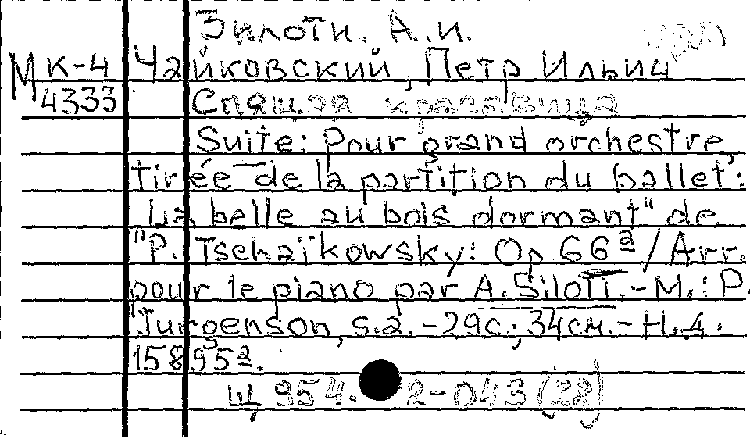 Зилоти. А.И.
МК-4 Чайковский, Петр Ильич
4333 Спящая красавица
Suite: Pour grand orchestre,
tirée de la partition du ballet:
"La belle au bois dormant" de
P. Tschaïkowsky: Op 66ª/Arr.
pour le piano par A. Siloti.-М.: P.
Jurgenson, s.a.-29с.; 34см.-Н.д.
15895ª.
Щ 954. 2-043 (28)